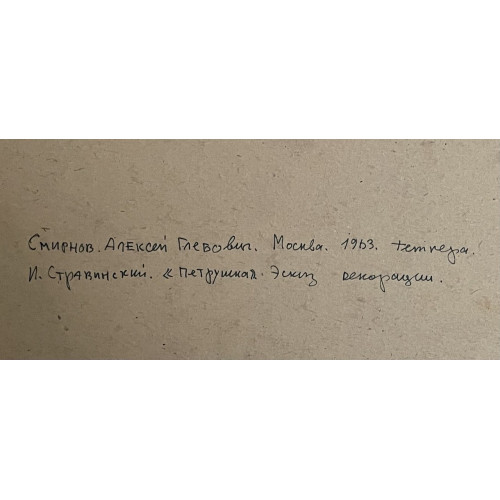 Смирнов. Алексей Глебович. Москва. 1963. темпера.
И. Стравинский. «Петрушка». Эскиз декорации.